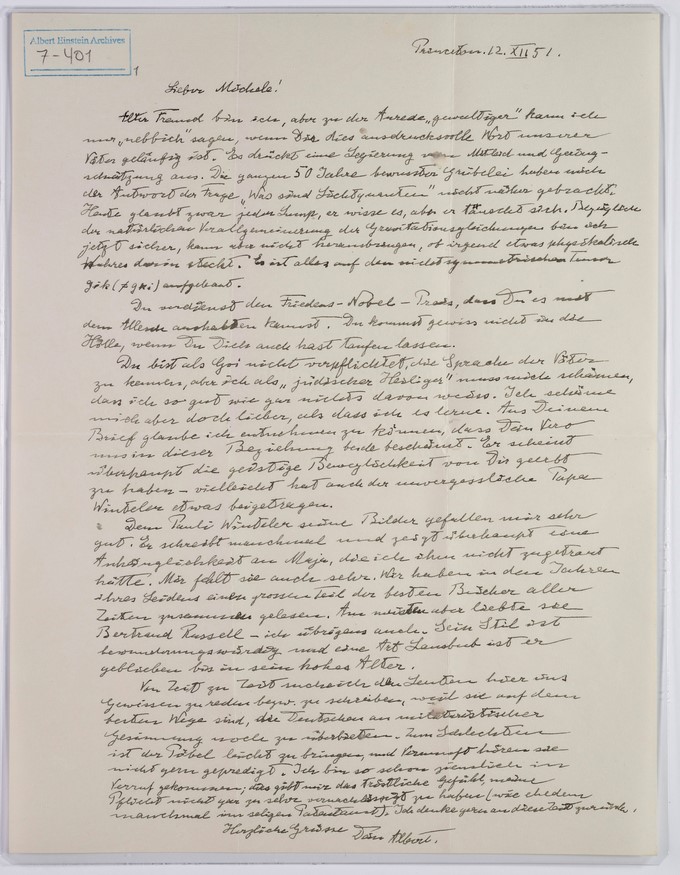 Albert Einstein Archives
7-401
1
Princeton. 12. XII 51.
Lieber Michele!
Alter Freund bin ich, aber zu der Anrede „gewaltiger" kann ich
nur „nebbich" sagen, wenn Dir dies ausdrucksvolle Wort unserer
Väter geläufig ist. Es drückt eine Legierung von Mitleid und Gering-
schätzung aus. Die ganzen 50 Jahre bewusster Grübelei haben mich
der Antwort der Frage „Was sind Lichtquanten" nicht näher gebracht.
Heute glaubt zwar jeder Lump, er wisse es, aber er täuscht sich. Bezüglich
der natürlichen Verallgemeinerung der Gravitationsgleichungen bin ich
jetzt sicher, kann aber nicht herausbringen, ob irgend etwas physikalisch
Wahres darin steckt. Es ist alles auf dem nichtsymmetrischen Tensor
gik (≠ gki) aufgebaut.
Du verdienst den Friedens-Nobel-Preis, dass Du es mit
dem aushalten kannst. Du kommst gewiss nicht in die
Hölle, wenn Du Dich auch hast taufen lassen.
Du bist als Goi nicht verpflichtet, die Sprache der Väter
zu kennen, aber ich als „jüdischer Heiliger" muss mich schämen,
dass ich so gut wie gar nichts davon weiss. Ich schäme
mich aber doch lieber, als dass ich es lerne. Aus Deinem
Brief glaube ich entnehmen zu können, dass Dein Vero
uns in dieser Beziehung beide beschämt. Er scheint
überhaupt die geistige Beweglichkeit von Dir geerbt
zu haben – vielleicht hat auch der unvergessliche Papa
Winteler etwas beigetragen.
Dem Pauli Winteler seine Bilder gefallen mir sehr
gut. Er schreibt manchmal und zeigt überhaupt eine
Anhänglichkeit an Maja, die ich ihm nicht zugetraut
hätte. Mir fehlt sie auch sehr. Wir haben in den Jahren
ihres Leidens einen grossen Teil der besten Bücher aller
Zeiten zusammen gelesen. Am meisten aber liebte sie
Bertrand Russell – ich übrigens auch. Sein Stil ist
bewunderungswürdig und eine Art Lausbub ist er
geblieben bis in sein hohes Alter.
Von Zeit zu Zeit suche ich den Leuten hier ins
Gewissen zu reden bezw. zu schreiben, weil sie auf dem
besten Wege sind, die Deutschen an militaristischer
Gesinnung noch zu überbieten. Zum Schlechten
ist der Pöbel leicht zu bringen, und Vernunft hören sie
nicht gern gepredigt. Ich bin so schon ziemlich in
Verruf gekommen; dies gibt mir das tröstliche Gefühl, meine
Pflicht nicht gar zu sehr vernachlässigt zu haben (wie ehedem
manchmal im seligen Patentamt). Ich denke gern an diese Zeit zurück.
Herzliche Grüsse Dein Albert.